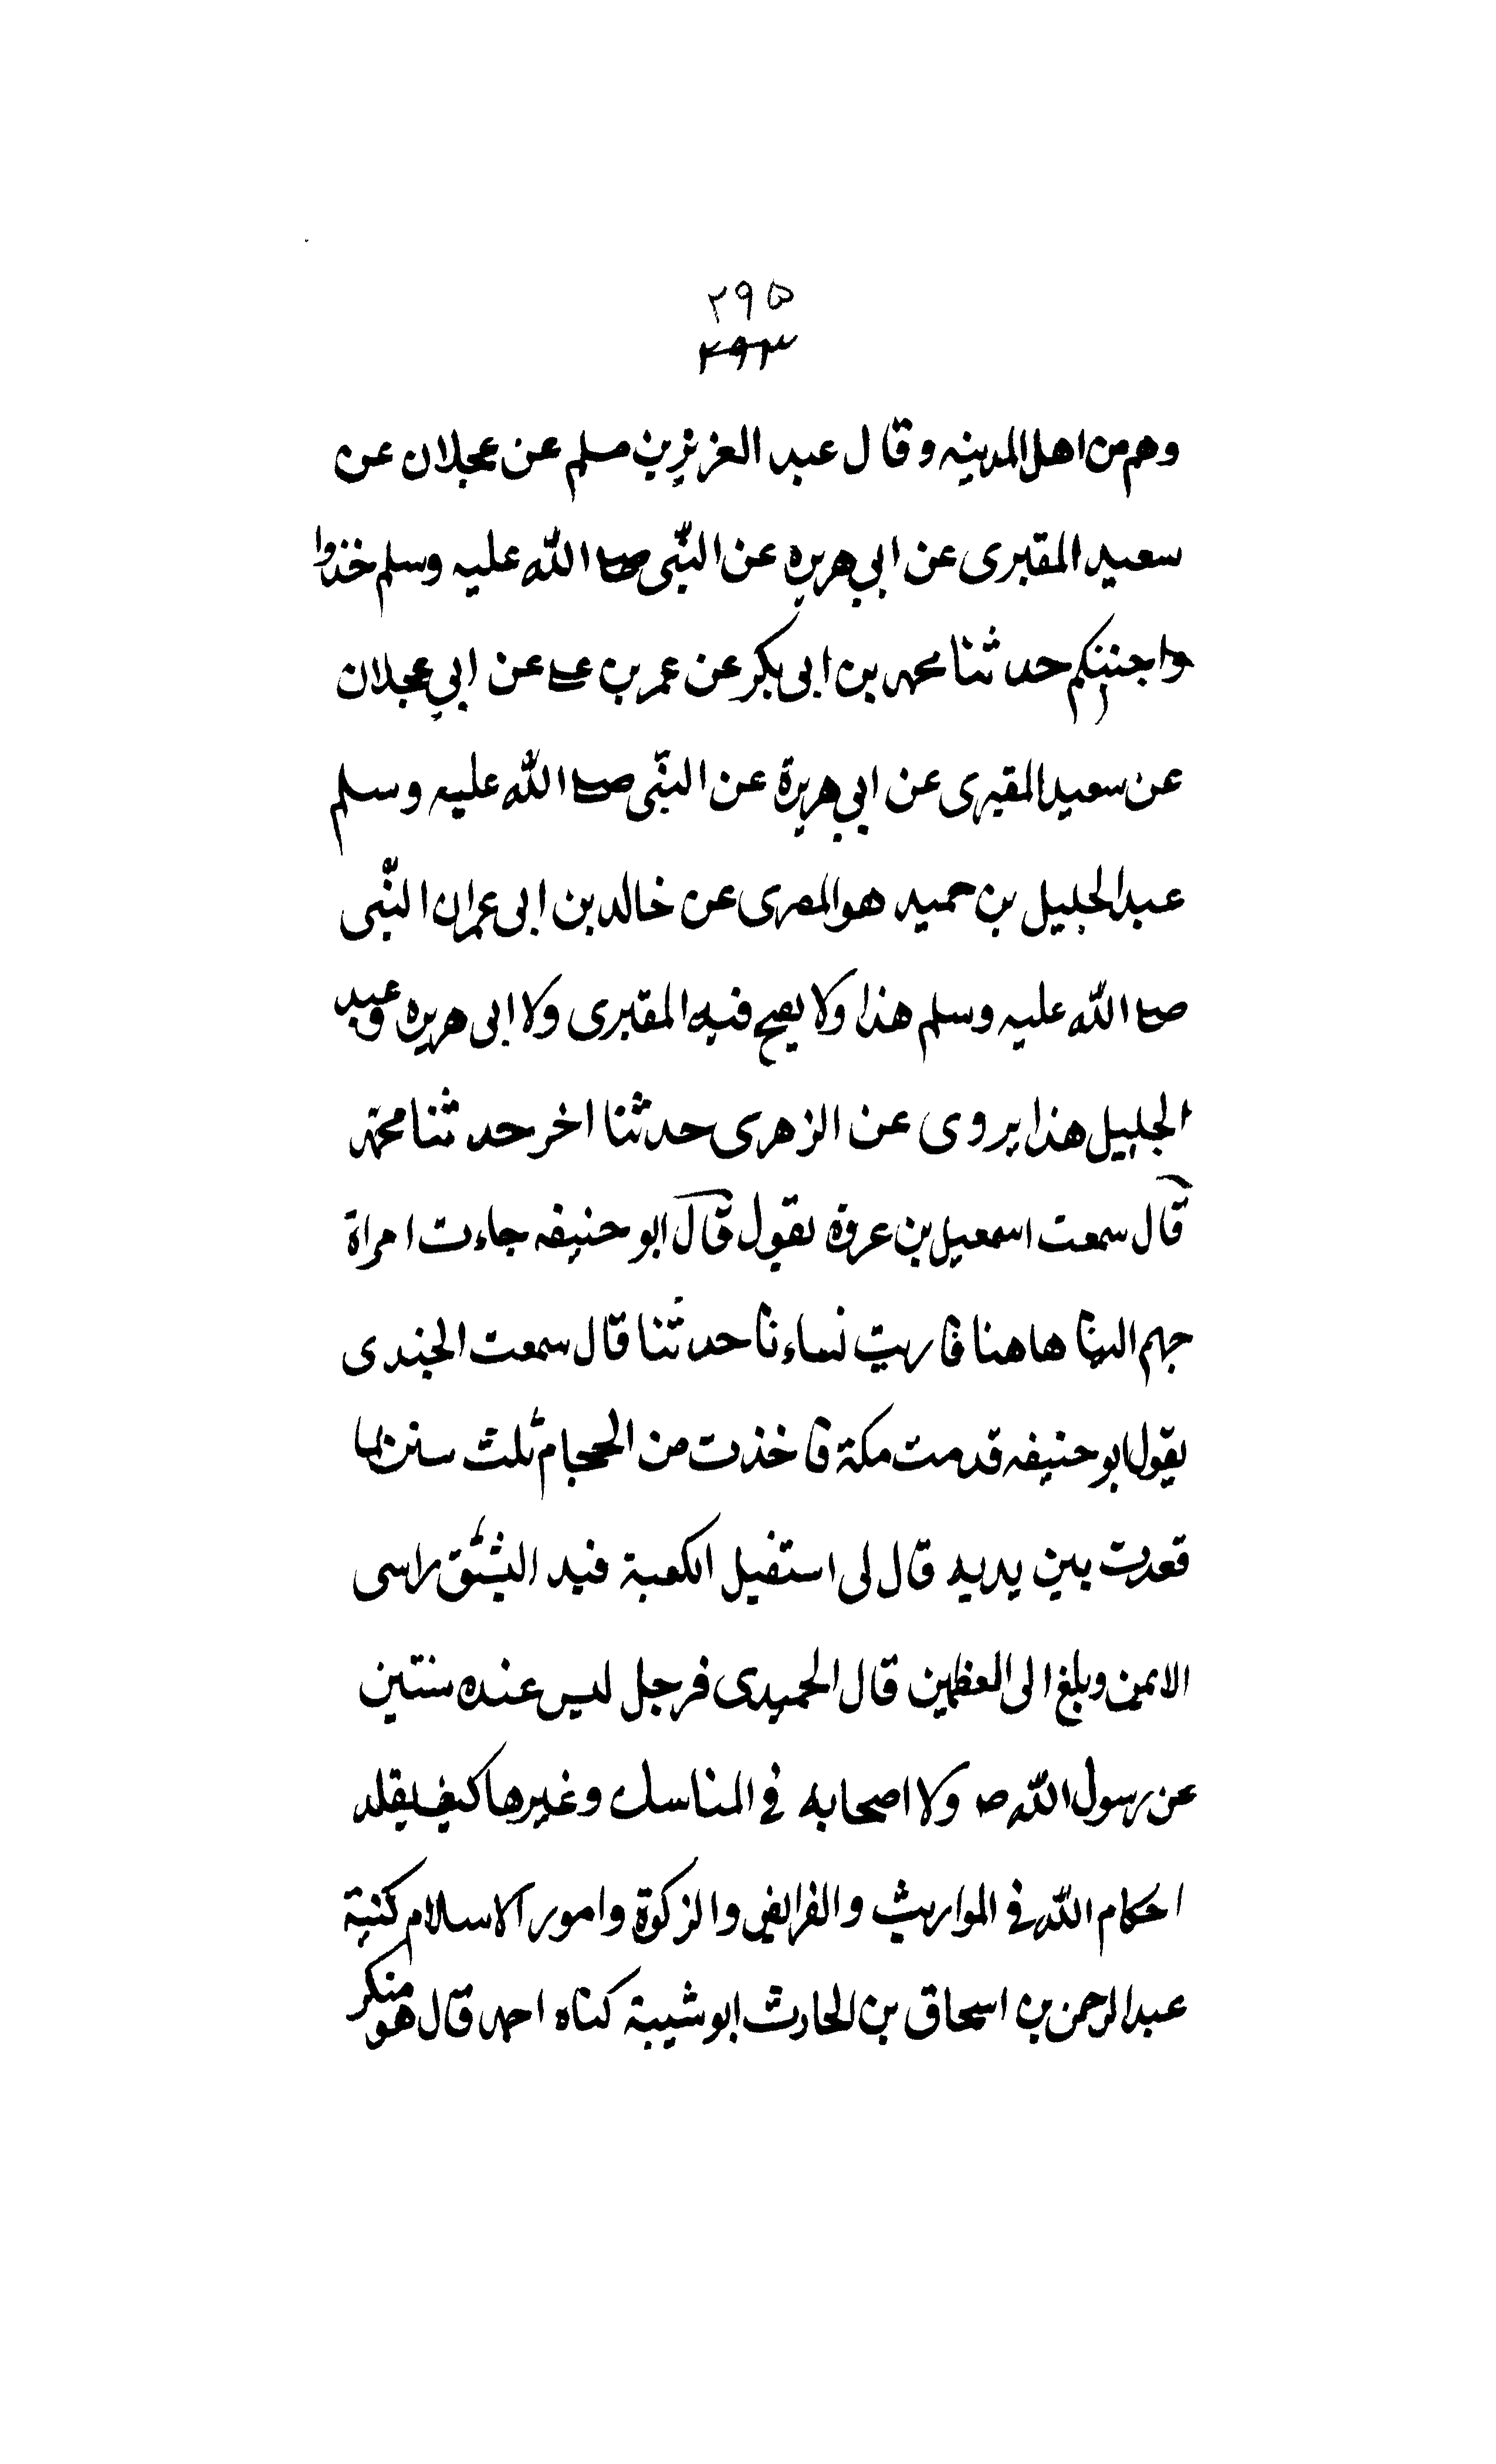 ۲۹۵
۲۹۳
وهم من اهل المدينه وقال عبد العزيز بن مسلم عن عجلان عن
سعيد المقبرى عن ابي هريره عن النبى صلى الله عليه وسلم خذوا
جننكم حدثنا محمد بن ابى بكر عن عمر بن على عن ابي عجلان
عن سعيد المقبرى عن ابي هريرة عن النبى صلى الله عليه وسلم
عبد الجليل بن حميد هو المصرى عن خالد بن ابى عمران النبى
صلى الله عليه وسلم هذا ولا يصح فيه المقبرى ولا ابى هريره وعبد
الجليل هذا يروى عن الزهرى حدثنا اخر حدثنا محمد
قال سمعت اسمعيل بن عروة يقول قال ابو حنيفه جاءت امراة
جهم الينا هاهنا فاريت نساءنا حدثنا قال سمعت الحميدى
يقول ابو حنيفه قدمت مكة فاخذت من الحجام ثلث سنن لما
قعدت بين يديه قال لى استقبل الكعبة فبد الشق راسى
الايمن وبلغ الى العظمين قال الحميدى فرجل ليس عنده سنتين
عن رسول الله ص ولا اصحابه في المناسك وغيرها كيف يقلد
احكام الله في المواريث والفرايض والزكوة وامور الاسلام كنية
عبد الرحمن بن اسحاق بن الحارث ابو شيبة كناه احمد قال هو منكر